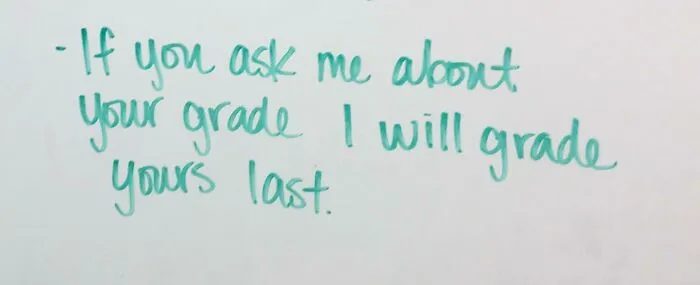 - If you ask me about
your grade I will grade
yours last.